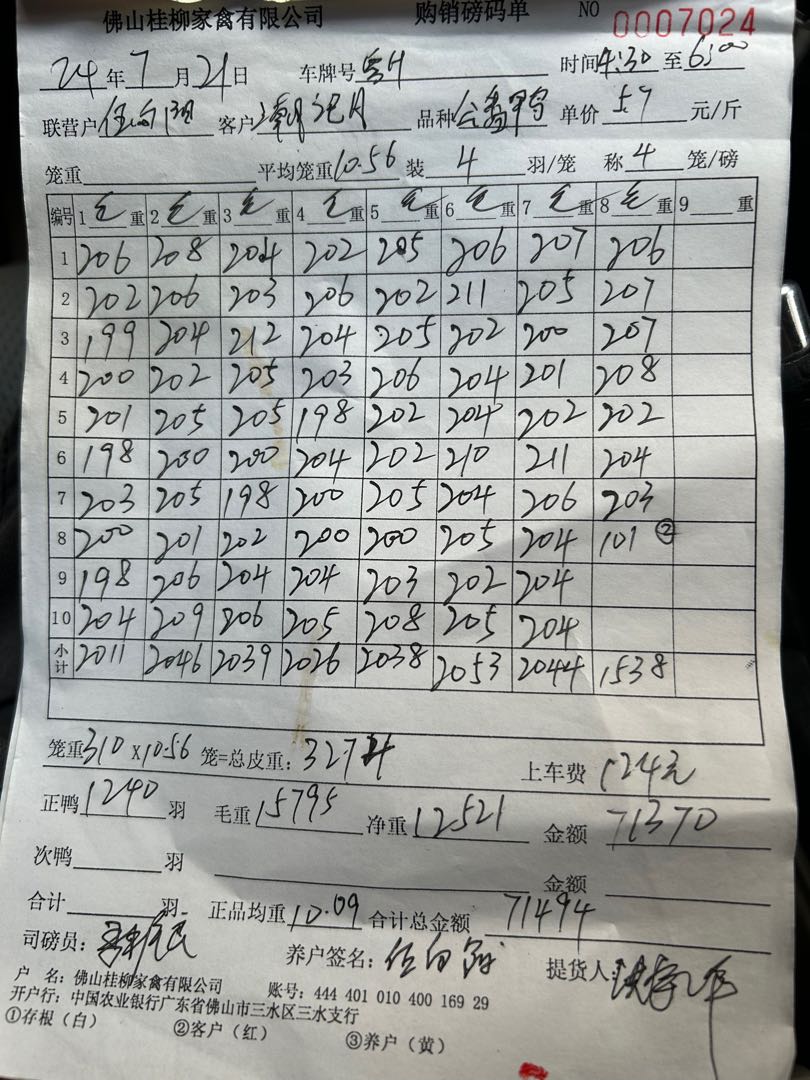 佛山桂柳家禽有限公司 购销磅码单 NO 0007024
24年7月21日 车牌号 时间4:30至6:00
联营户 客户 品种 单价5.7元/斤
笼重 平均笼重10.56 装4羽/笼 称4笼/磅
编号 1毛重 2毛重 3毛重 4毛重 5毛重 6毛重 7毛重 8毛重 9 重
1 206 208 204 202 205 206 207 206
2 202 206 203 206 202 211 205 207
3 199 204 212 204 205 202 200 207
4 200 202 205 203 206 204 201 208
5 201 205 205 198 202 204 202 202
6 198 200 200 204 202 210 211 204
7 203 205 198 200 205 204 206 203
8 200 201 202 200 200 205 204 101 ②
9 198 206 204 204 203 202 204
10 204 209 206 205 208 205 204
小计 2011 2046 2039 2026 2038 2053 2044 1538
笼重310×10.56笼=总皮重：3274 上车费 124元
正鸭1240羽 毛重15795 净重12521 金额 71370
次鸭 羽 金额
合计 羽 正品均重10.09 合计总金额 71494
司磅员： 养户签名： 提货人：
户 名：佛山桂柳家禽有限公司 账号：444 401 010 400 169 29
开户行：中国农业银行广东省佛山市三水区三水支行
①存根（白） ②客户（红） ③养户（黄）